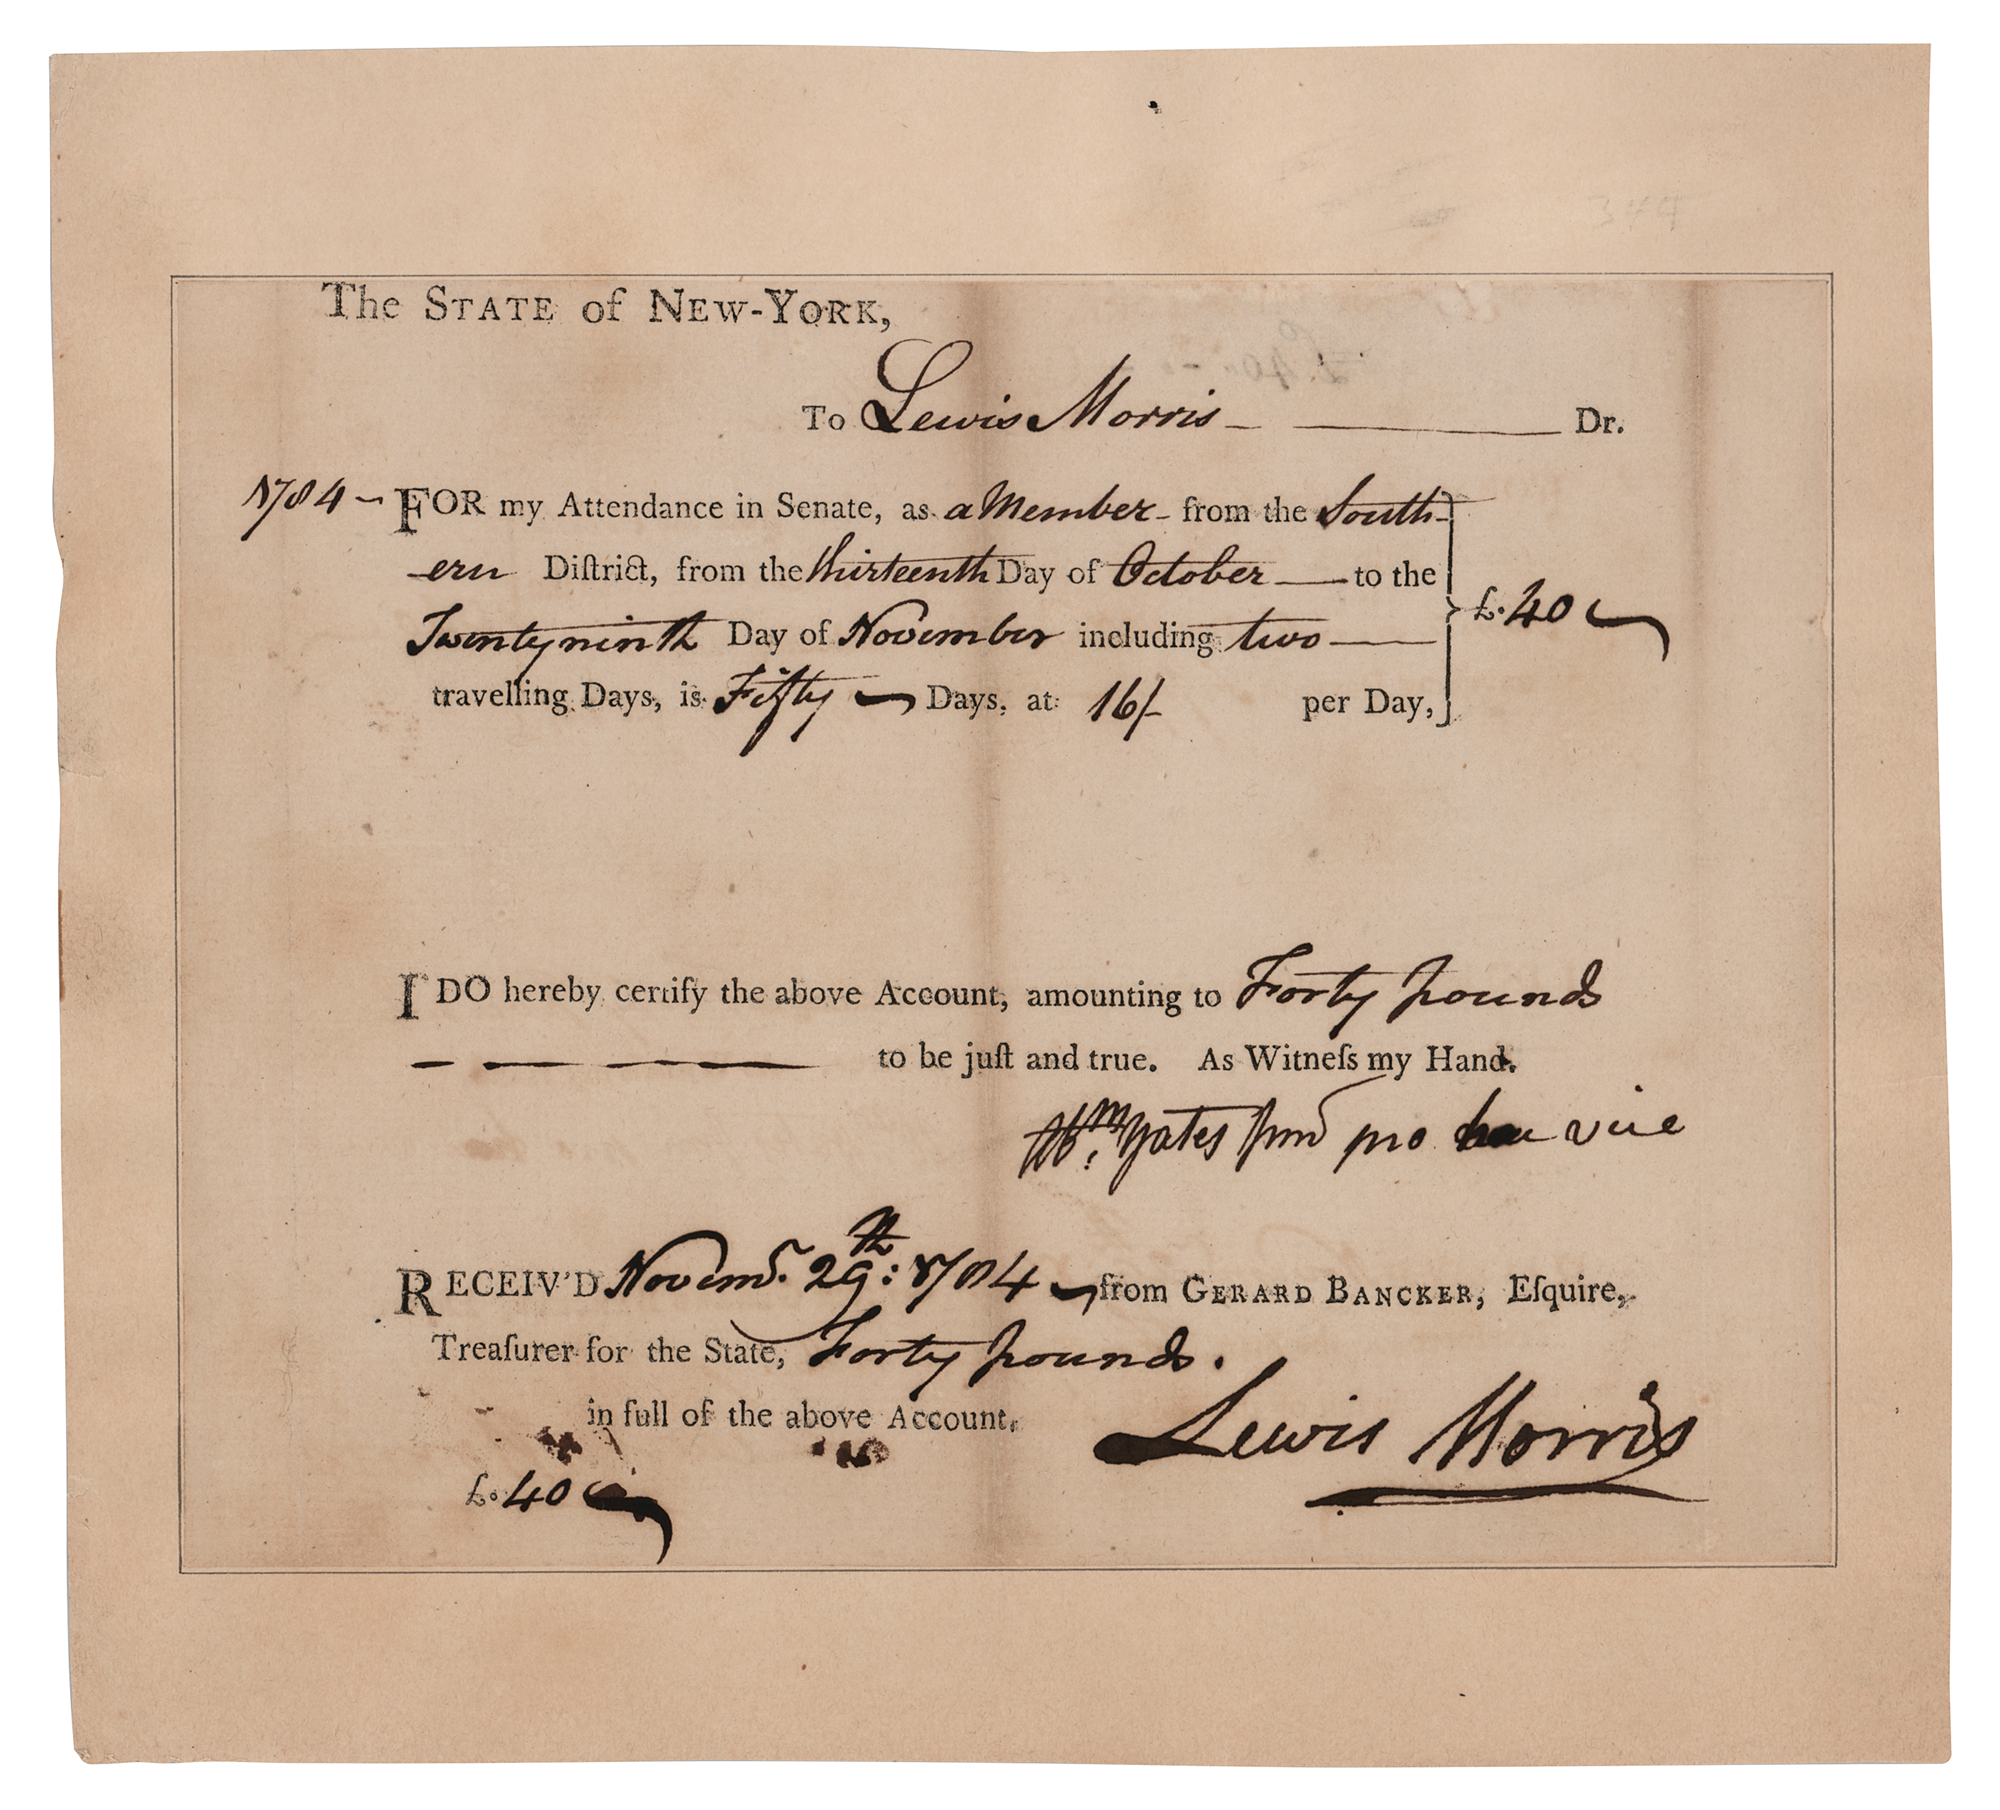 The STATE of NEW-YORK,
To Lewis Morris Dr.
1784 FOR my Attendance in Senate, as a Member from the South-
ern Diſtrict, from the thirteenth Day of October to the
Twentyninth Day of November including two
travelling Days, is Fifty Days, at 16/ per Day,
£.40
I DO hereby certify the above Account, amounting to Forty pounds
to be juſt and true. As Witneſs my Hand.
Abm: Yates Junr pro hac vice
RECEIV'D Novemr. 29th: 1784 from GERARD BANCKER, Eſquire,
Treaſurer for the State, Forty pounds.
in full of the above Account.
Lewis Morris
£.40